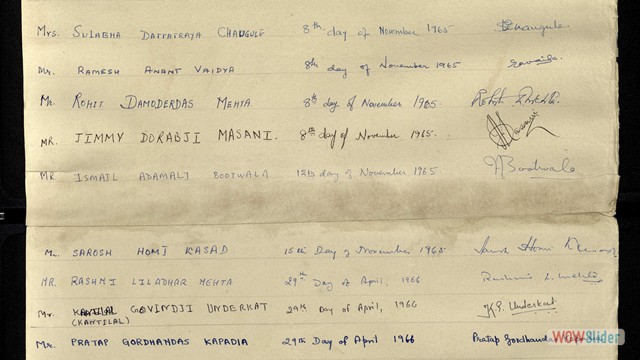 Mrs. SULABHA DATTATRAYA CHAUGULE 8th day of November 1965 Schaugule
Mr. RAMESH ANANT VAIDYA 8th day of November 1965
Mr. ROHIT DAMODERDAS MEHTA. 8th day of November 1965 Rohit Mehta
MR. JIMMY DORABJI MASANI. 8th day of November 1965.
MR. ISMAIL ADAMALI BOOTWALA 12th day of November 1965 Bootwala
Mr. SAROSH HOMI KASAD 15th Day of November 1965 Sarosh Homi
MR. RASHMI LILADHAR MEHTA 29th Day of April, 1966 Rashmi L. Mehta
Mr. GOVINDJI UNDERKAT 29th Day of April, 1966 K.G. Underkat
(KANTILAL)
Mr. PRATAP GORDHANDAS KAPADIA 29th Day of April 1966 Pratap Gordhandas
WOWSlider